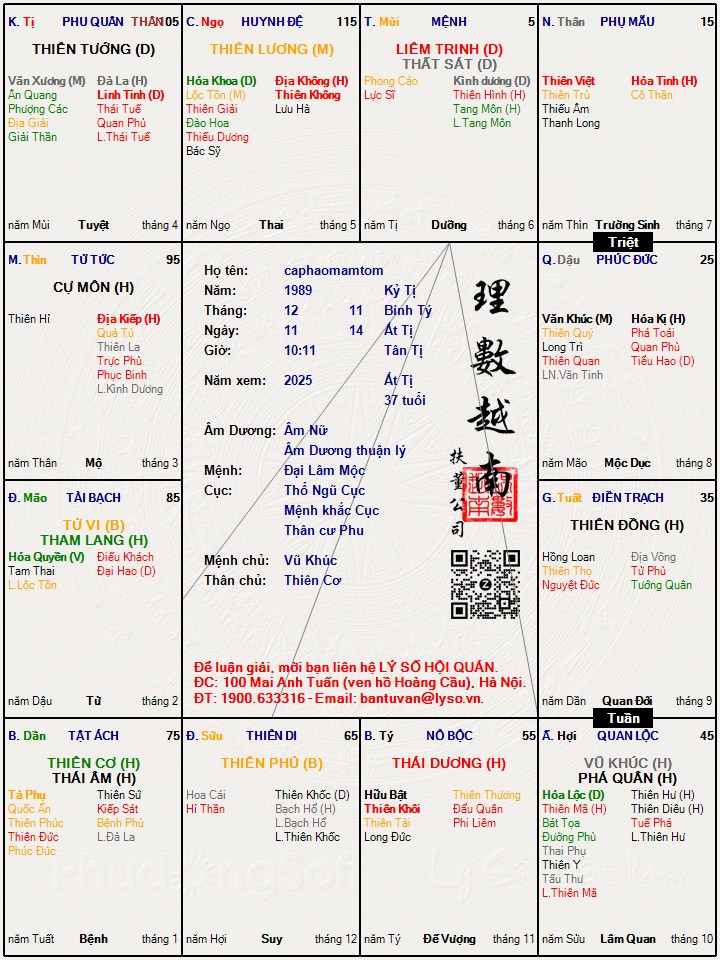 K. Tị PHU QUÂN THÂN 105
THIÊN TƯỚNG (D)
Văn Xương (M) Đà La (H)
Ân Quang Linh Tinh (D)
Phượng Các Thái Tuế
Địa Giải Quan Phủ
Giải Thần L.Thái Tuế
năm Mùi Tuyệt tháng 4
C. Ngọ HUYNH ĐỆ 115
THIÊN LƯƠNG (M)
Hóa Khoa (D) Địa Không (H)
Lộc Tồn (M) Thiên Không
Thiên Giải Lưu Hà
Đào Hoa
Thiếu Dương
Bác Sỹ
năm Ngọ Thai tháng 5
T. Mùi MỆNH 5
LIÊM TRINH (D)
THẤT SÁT (D)
Phong Cáo Kình dương (D)
Lực Sĩ Thiên Hình (H)
Tang Môn (H)
L.Tang Môn
năm Tị Dưỡng tháng 6
N. Thân PHỤ MẪU 15
Thiên Việt Hỏa Tinh (H)
Thiên Trù Cô Thần
Thiếu Âm
Thanh Long
năm Thìn Trường Sinh tháng 7
Triệt
M. Thìn TỬ TỨC 95
CỰ MÔN (H)
Thiên Hỉ Địa Kiếp (H)
Quả Tú
Thiên La
Trực Phù
Phục Binh
L.Kình Dương
năm Thân Mộ tháng 3
Họ tên: caphaomamtom
Năm: 1989 Kỷ Tị
Tháng: 12 11 Bính Tý
Ngày: 11 14 Ất Tị
Giờ: 10:11 Tân Tị
Năm xem: 2025 Ất Tị
37 tuổi
Âm Dương: Âm Nữ
Âm Dương thuận lý
Mệnh: Đại Lâm Mộc
Cục: Thổ Ngũ Cục
Mệnh khắc Cục
Thân cư Phu
Mệnh chủ: Vũ Khúc
Thân chủ: Thiên Cơ
理數越南
扶董公司
Để luận giải, mời bạn liên hệ LÝ SỐ HỘI QUÁN.
ĐC: 100 Mai Anh Tuấn (ven hồ Hoàng Cầu), Hà Nội.
ĐT: 1900.633316 - Email: bantuvan@lyso.vn.
Q. Dậu PHÚC ĐỨC 25
Văn Khúc (M) Hóa Kị (H)
Thiên Quý Phá Toái
Long Trì Quan Phù
Thiên Quan Tiểu Hao (D)
LN.Văn Tinh
năm Mão Mộc Dục tháng 8
Đ. Mão TÀI BẠCH 85
TỬ VI (B)
THAM LANG (H)
Hóa Quyền (V) Điếu Khách
Tam Thai Đại Hao (D)
L.Lộc Tồn
năm Dậu Tử tháng 2
G. Tuất ĐIỀN TRẠCH 35
THIÊN ĐỒNG (H)
Hồng Loan Địa Võng
Thiên Thọ Tử Phù
Nguyệt Đức Tướng Quân
năm Dần Quan Đới tháng 9
Tuần
B. Dần TẬT ÁCH 75
THIÊN CƠ (H)
THÁI ÂM (H)
Tả Phụ Thiên Sứ
Quốc Ấn Kiếp Sát
Thiên Phúc Bệnh Phù
Thiên Đức L.Đà La
Phúc Đức
năm Tuất Bệnh tháng 1
Đ. Sửu THIÊN DI 65
THIÊN PHỦ (B)
Hoa Cái Thiên Khốc (D)
Hỉ Thần Bạch Hổ (H)
L.Bạch Hổ
L.Thiên Khốc
năm Hợi Suy tháng 12
B. Tý NÔ BỘC 55
THÁI DƯƠNG (H)
Hữu Bật Thiên Thương
Thiên Khôi Đẩu Quân
Thiên Tài Phi Liêm
Long Đức
năm Tý Đế Vượng tháng 11
Ấ. Hợi QUAN LỘC 45
VŨ KHÚC (H)
PHÁ QUÂN (H)
Hóa Lộc (D) Thiên Hư (H)
Thiên Mã (H) Thiên Diêu (H)
Bát Tọa Tuế Phá
Đường Phù L.Thiên Hư
Thai Phụ
Thiên Y
Tấu Thư
L.Thiên Mã
năm Sửu Lâm Quan tháng 10